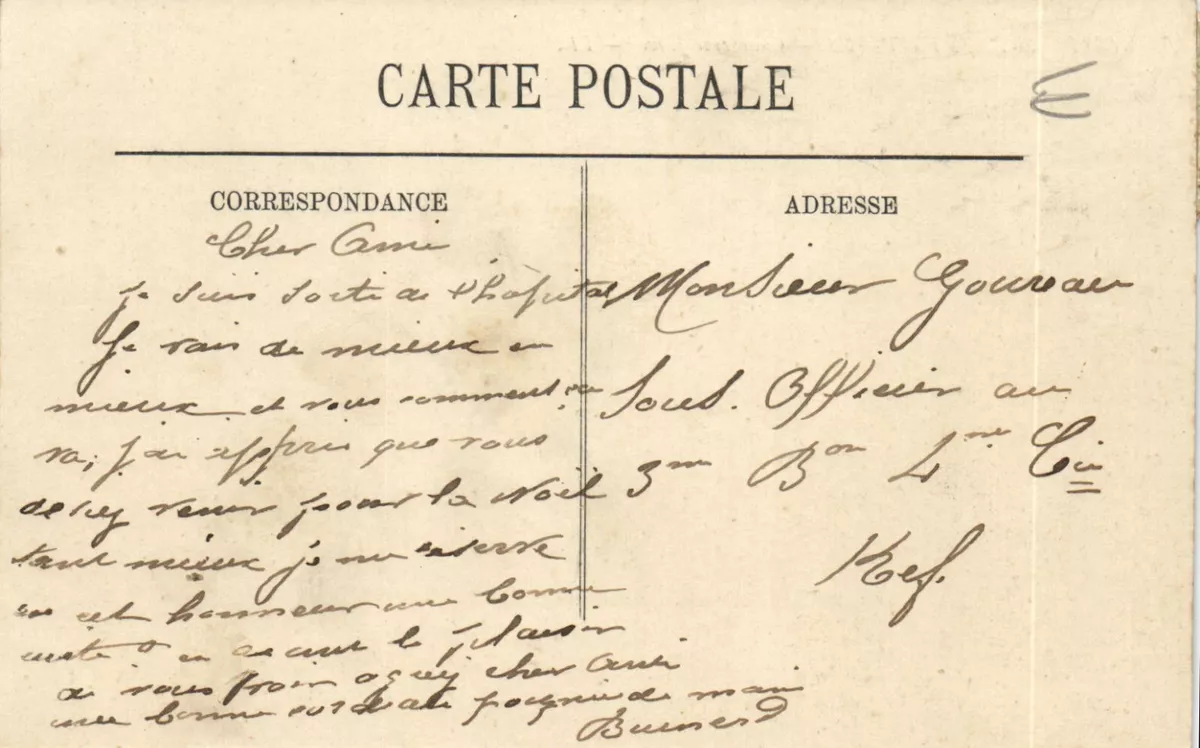 CARTE POSTALE
CORRESPONDANCE
Cher Ami
je suis sorti de l'hôpital
Je vais de mieux en
mieux et vous comment ça
va, j'ai appris que vous
devez venir pour la Noël
tant mieux je me réserve
en cet honneur une bonne
cuite en ayant le plaisir
de vous voir cher Ami
une bonne cordiale poignée de main
ADRESSE
Monsieur Goureau
Sous. Officier au
3me Bon 4me Cie
Kef.